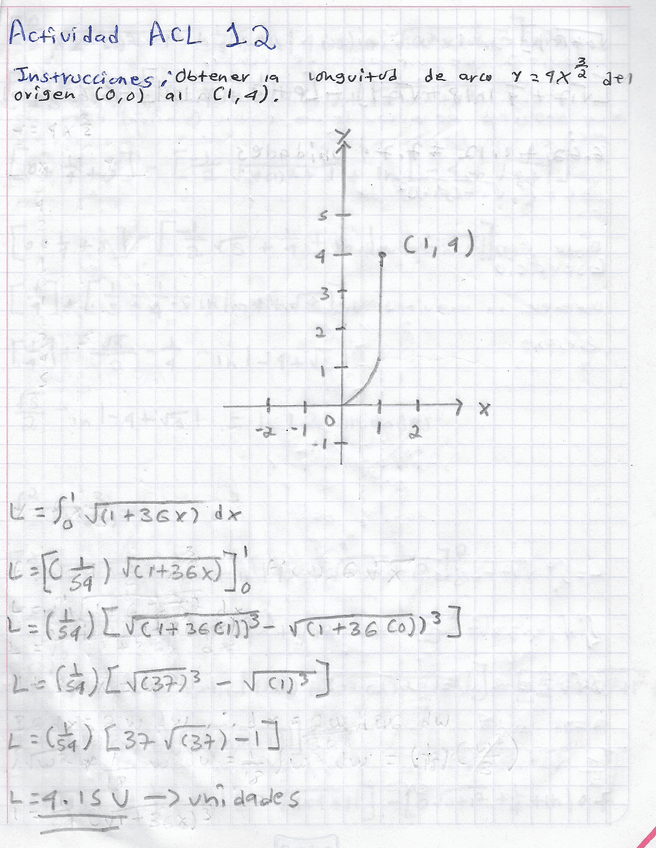 Actividad ACL 12
Instrucciones: Obtener la longuitud de arco Y = 4x^{3/2} del
origen (0,0) al (1,4).
Y
5
(1,4)
4
3
2
1
0 x
-2 -1 1 2
-1
L = ∫₀¹ √(1+36x) dx
L = [(1/54) √(1+36x)]₀¹
L = (1/54) [√(1+36(1))³ - √(1+36(0))³]
L = (1/54) [√(37)³ - √(1)³]
L = (1/54) [37 √(37) - 1]
L = 4.15 U → unidades